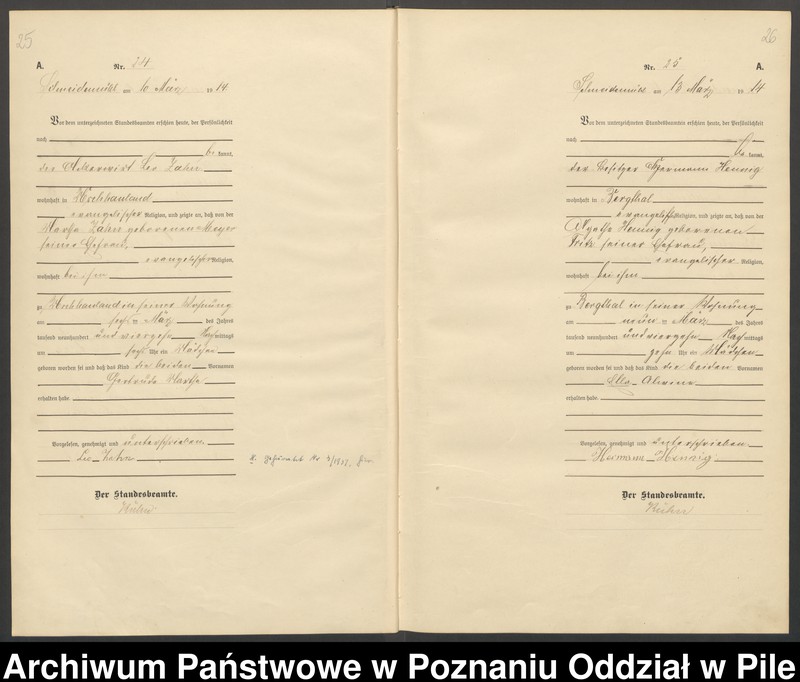 25
A. Nr. 24
Schneidemühl am 10 März 1914
Vor dem unterzeichneten Standesbeamten erschien heute, der Persönlichkeit
nach
be kannt,
der Ackerwirt Leo Zahn
wohnhaft in Kochhauland
evangelischer Religion, und zeigte an, daß von der
Martha Zahn geborenen Meyer
seiner Ehefrau,
evangelischer Religion,
wohnhaft bei ihm
zu in seiner Wohnung
am März des Jahres
tausend neunhundert und vierzehn Nachmittags
um Uhr ein Mädchen
geboren worden sei und daß das Kind die beiden Vornamen
Gertrude Martha
erhalten habe
Vorgelesen, genehmigt und unterschrieben
Leo Zahn
Der Standesbeamte.
Kühn
26
Nr. 25 A.
Schneidemühl am 13 März 1914
Vor dem unterzeichneten Standesbeamten erschien heute, der Persönlichkeit
nach
be kannt,
der Besitzer Hermann Hennig
wohnhaft in Bergthal
evangelischer Religion, und zeigte an, daß von der
Agathe Hennig geborenen
Fritz seiner Ehefrau,
evangelischer Religion,
wohnhaft bei ihm
zu Bergthal in seiner Wohnung
am neun März des Jahres
tausend neunhundert und vierzehn Nachmittags
um zehn Uhr ein Mädchen
geboren worden sei und daß das Kind die beiden Vornamen
Ella Alwine
erhalten habe
Vorgelesen, genehmigt und unterschrieben
Hermann Hennig
Der Standesbeamte.
Kühn
Archiwum Państwowe w Poznaniu Oddział w Pile